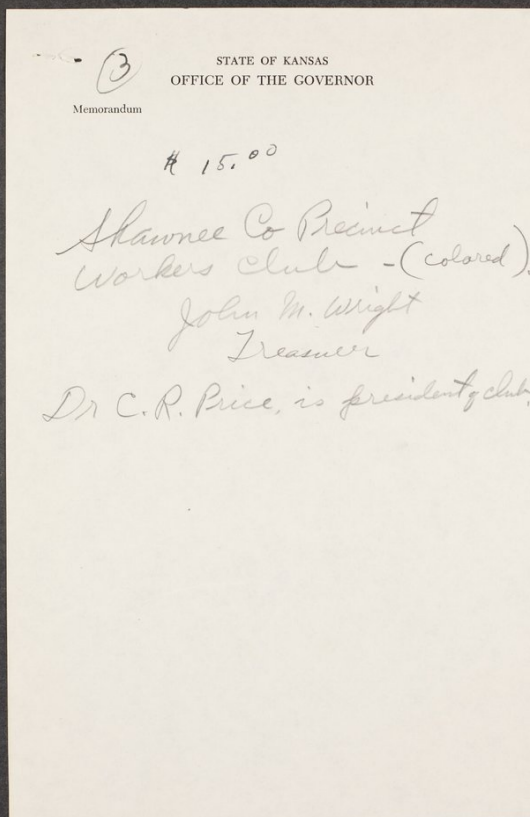 3
STATE OF KANSAS
OFFICE OF THE GOVERNOR
Memorandum
$ 15.00
Shawnee Co Precinct
Workers Club - (colored).
John M. Wright
Treasurer
Dr C. R. Price, is president of club.